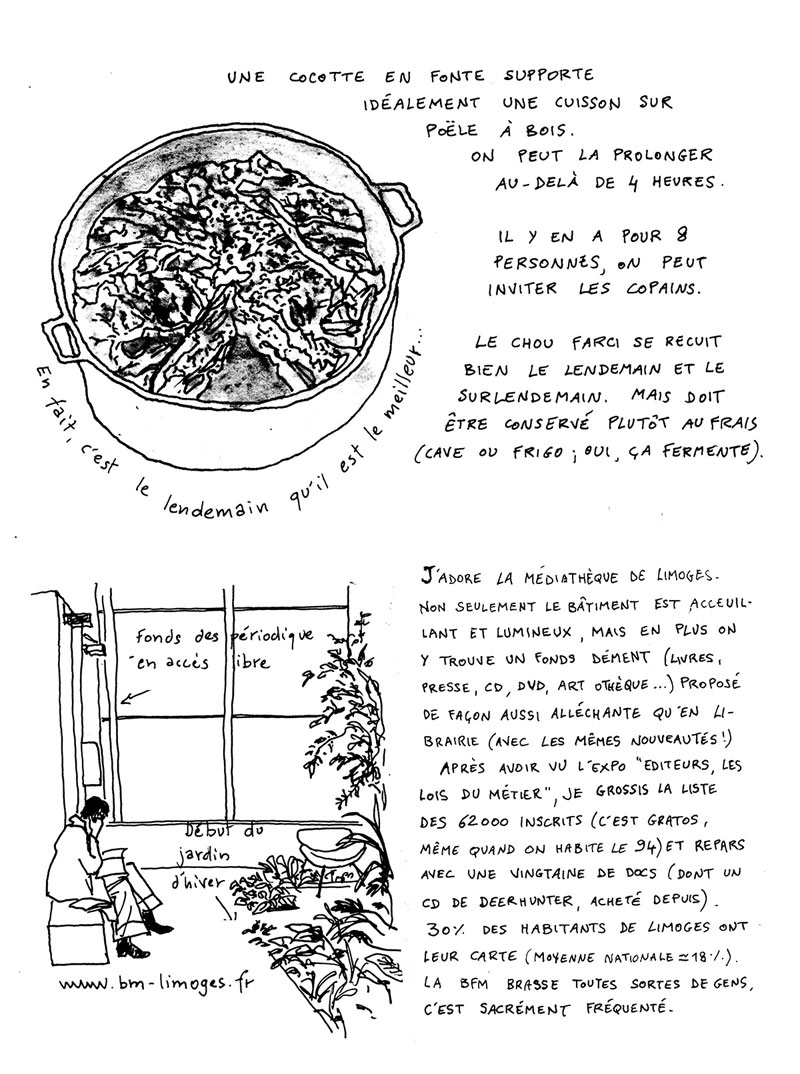 UNE COCOTTE EN FONTE SUPPORTE
IDÉALEMENT UNE CUISSON SUR
POËLE À BOIS.
ON PEUT LA PROLONGER
AU-DELÀ DE 4 HEURES.
IL Y EN A POUR 8
PERSONNES, ON PEUT
INVITER LES COPAINS.
LE CHOU FARCI SE RECUIT
BIEN LE LENDEMAIN ET LE
SURLENDEMAIN. MAIS DOIT
ÊTRE CONSERVÉ PLUTÔT AU FRAIS
(CAVE OU FRIGO ; OUI, ÇA FERMENTE).
En fait, c'est le lendemain qu'il est le meilleur...
Fonds des périodique
en accès ibre
Début du
jardin
d'hiver
www.bm-limoges.fr
J'ADORE LA MÉDIATHÈQUE DE LIMOGES.
NON SEULEMENT LE BÂTIMENT EST ACCEUIL-
LANT ET LUMINEUX, MAIS EN PLUS ON
Y TROUVE UN FONDS DÉMENT (LIVRES,
PRESSE, CD, DVD, ART OTHÈQUE...) PROPOSÉ
DE FAÇON AUSSI ALLÉCHANTE QU'EN LI-
BRAIRIE (AVEC LES MÊMES NOUVEAUTÉS!)
APRÈS AVOIR VU L'EXPO "EDITEURS, LES
LOIS DU MÉTIER", JE GROSSIS LA LISTE
DES 62000 INSCRITS (C'EST GRATOS,
MÊME QUAND ON HABITE LE 94) ET REPARS
AVEC UNE VINGTAINE DE DOCS (DONT UN
CD DE DEERHUNTER, ACHETÉ DEPUIS).
30% DES HABITANTS DE LIMOGES ONT
LEUR CARTE (MOYENNE NATIONALE ≃ 18%).
LA BFM BRASSE TOUTES SORTES DE GENS,
C'EST SACRÉMENT FRÉQUENTÉ.